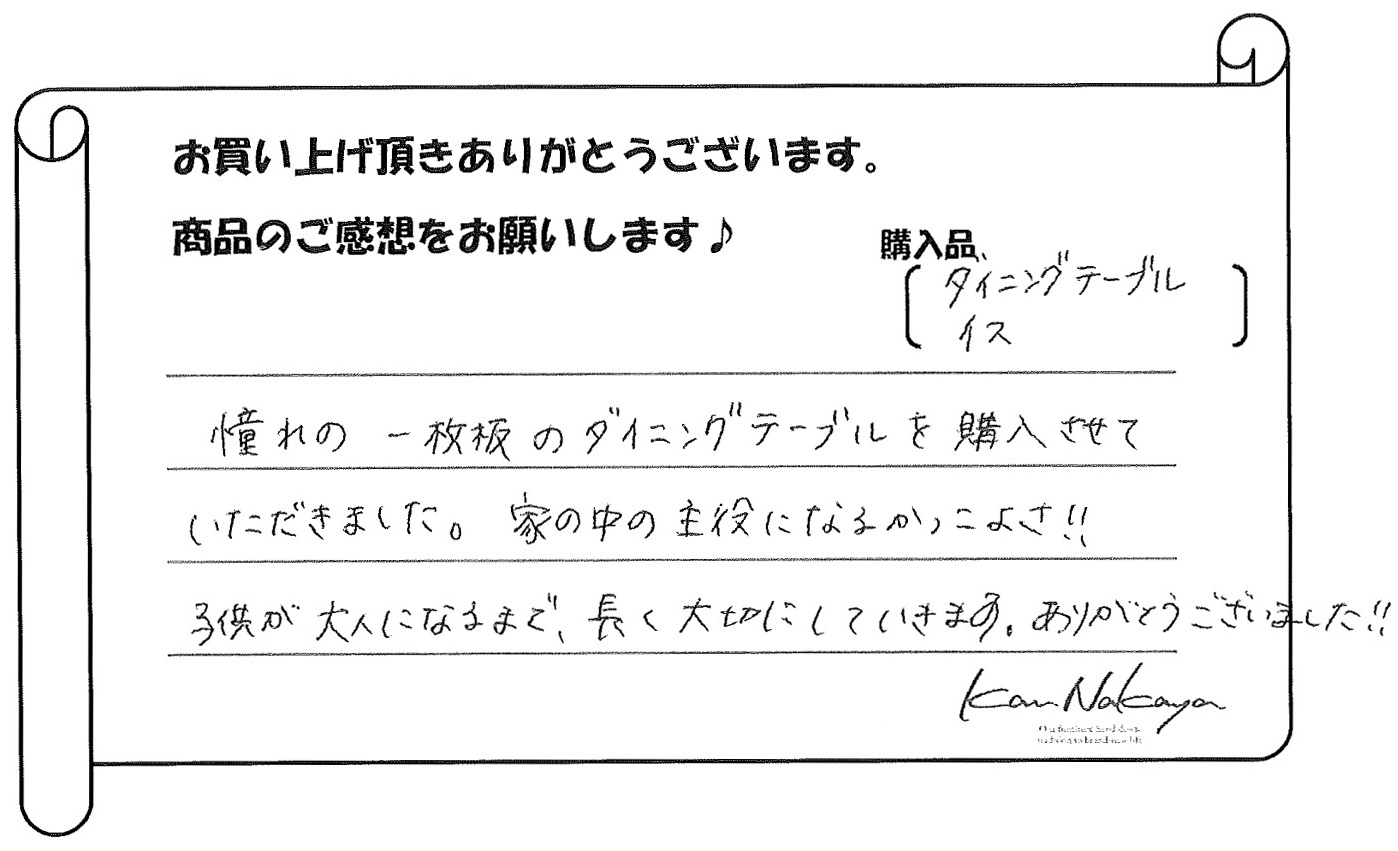 お買い上げ頂きありがとうございます。
商品のご感想をお願いします♪
購入品
ダイニングテーブル
イス
憧れの一枚板のダイニングテーブルを購入させて
いただきました。家の中の主役になるかっこよさ!!
子供が大人になるまで、長く大切にしていきます。ありがとうございました!!
Kan Nakaya